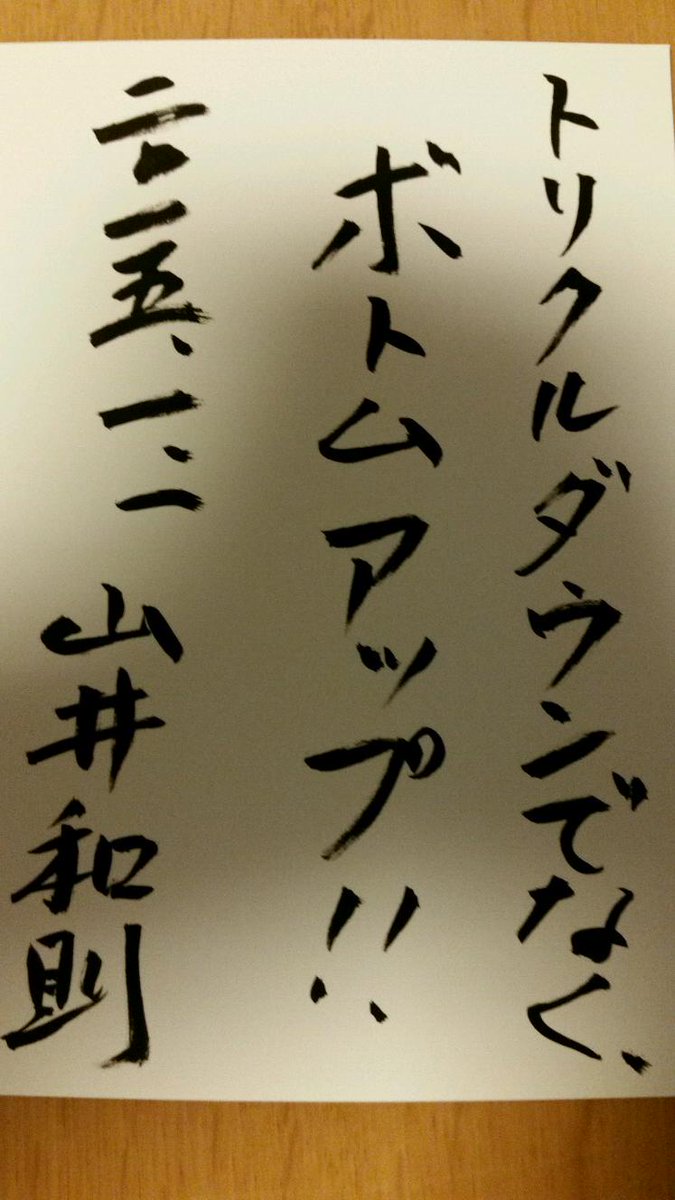 トリクルダウンでなく、
ボトムアップ!!
二〇一五、一、一 山井和則